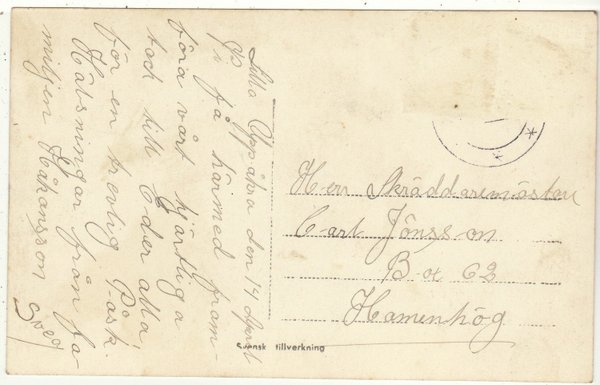 Lilla Uppåkra den 14 April
Vi få härmed fram
föra vårt hjärtliga
tack till Eder alla,
för en trevlig Påsk.
Hälsningar från fa
miljen Håkansson
Svensk tillverkning
Herr Skräddaremästare
Carl Jönsson
Box 62
Hamenhög